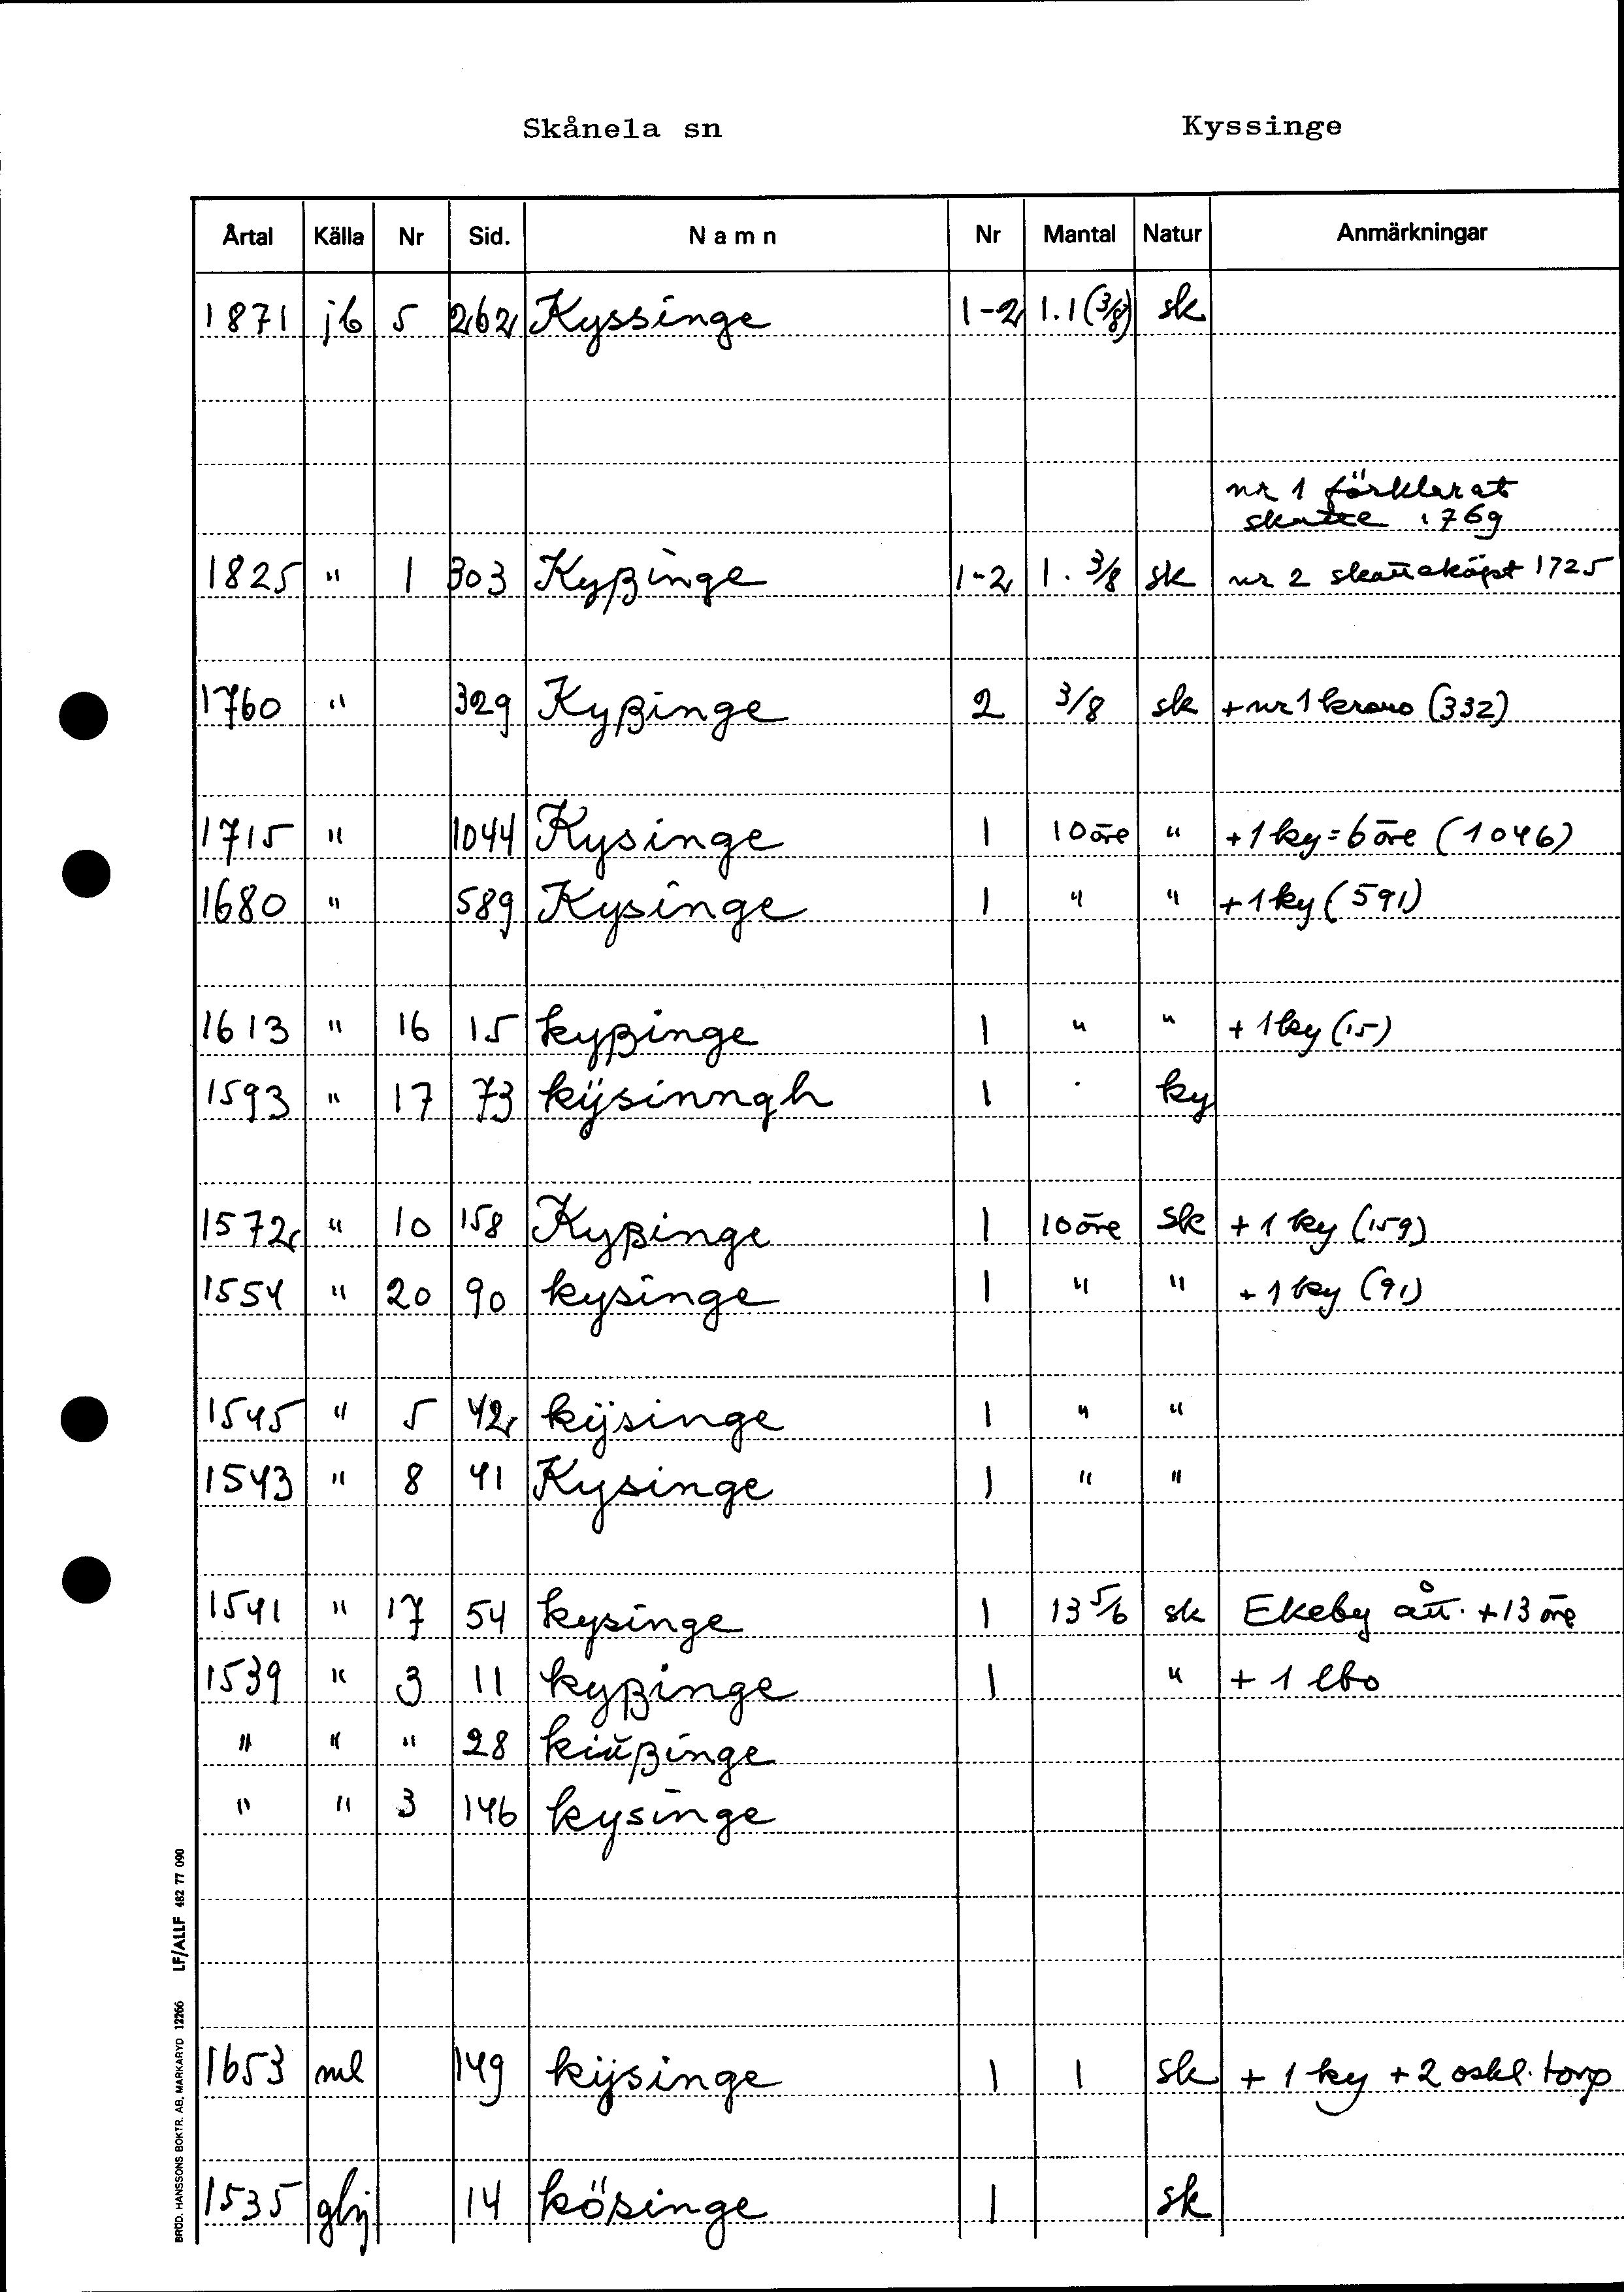 Skånela sn Kyssinge
Årtal Källa Nr Sid. Namn Nr Mantal Natur Anmärkningar
1871 jb 5 262 Kyssinge 1-2 1.1 (3/8) sk
nr 1 förklarat
skatte 1769
1825 " 1 303 Kyßinge 1-2 1. 3/8 sk nr 2 skatteköpt 1725
1760 " 329 Kyßinge 2 3/8 sk + nr 1 krono (332)
1715 " 1044 Kysinge 1 10 öre " +1 ky = 6 öre (1046)
1680 " 589 Kysinge 1 " " +1 ky (591)
1613 " 16 15 kyßinge 1 " " +1 ky (15)
1593 " 17 73 kÿsinngh 1 · ky
1572 " 10 158 Kyßinge 1 10 öre sk +1 ky (159)
1554 " 20 90 kysinge 1 " " +1 ky (91)
1545 " 5 42 kÿsinge 1 " "
1543 " 8 41 Kysinge 1 " "
1541 " 17 54 kysinge 1 13 5/6 sk Ekebyått. +13 öre
1539 " 3 11 kyßinge 1 " + 1 lbo
" " " 28 kiŭßinge
" " 3 146 kysinge
1653 ml 149 kÿsinge 1 1 sk + 1 ky + 2 oskl. torp
1535 ghj 14 kösinge 1 sk
BRÖD. HANSSONS BOKTR. AB, MARKARYD 12266 LF/ALLF 482 77 090